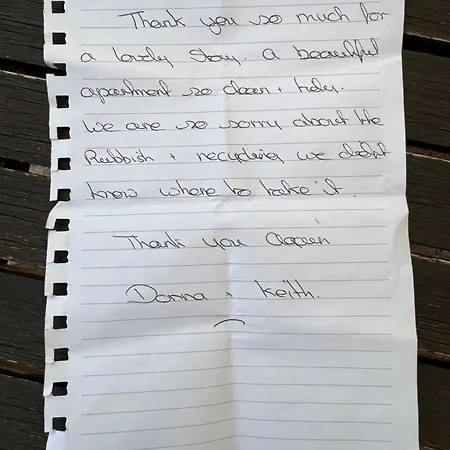 Thank you so much for
a lovely stay. a beautiful
apartment so clean + tidy.
we are so sorry about the
Rubbish + recycling we didn't
know where to take it.
Thank you again
Donna + Keith.